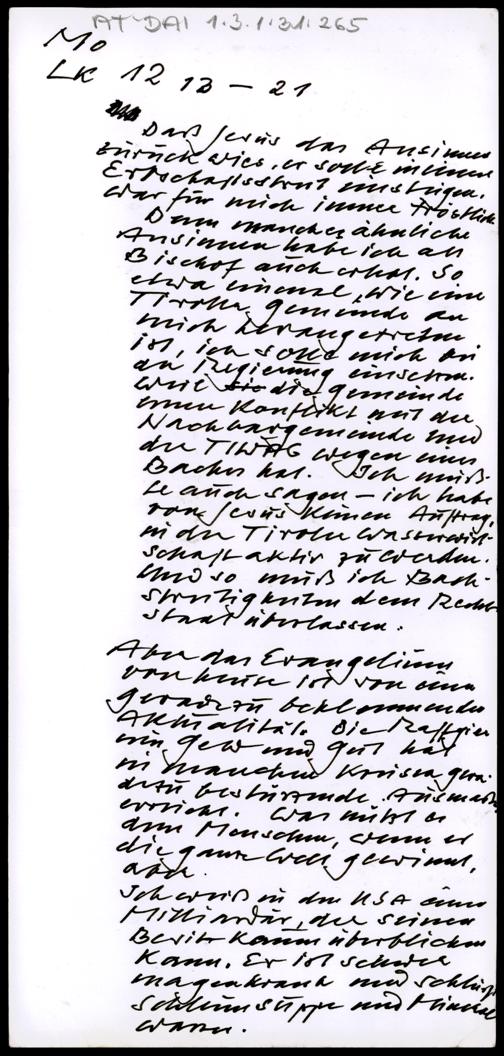 AT-DAI 1.3.1.31.265
Mo
LK 12 13 – 21
Daß Jesus das Ansinnen
zurückwies, er solle in einen
Erbschaftsstreit einsteigen,
war für mich immer tröstlich.
Denn manches ähnliche
Ansinnen habe ich als
Bischof auch erhal. So
etwa einmal, wie eine
Tiroler Gemeinde an
mich herangetreten
ist, ich solle mich bei
der Regierung einsetzen.
weil die Gemeinde
einen Konflikt mit der
Nachbargemeinde und
der TIWAG wegen eines
Baches hat. Ich muß-
te auch sagen – ich habe
von Jesus keinen Auftrag,
in der Tiroler Wasserwirt-
schaft aktiv zu werden.
Und so muß ich Bach-
streitigkeiten dem Rechts
staat überlassen.
Aber das Evangelium
von heute ist von einer
geradezu beklemmenden
Aktualität. Die Raffgier
um Geld und Gut hat
in manchen Kreisen gera-
dezu bestürzende Ausmaße
erreicht. Was nützt es
dem Menschen, wenn er
die ganze Welt gewinnt,
aber.
Ich weiß in den USA einen
Milliardär, der seinen
Besitz kaum überblicken
kann. Er ist schwer
magenkrank und schlürft
Schleimsuppe und Mineral
wasser.